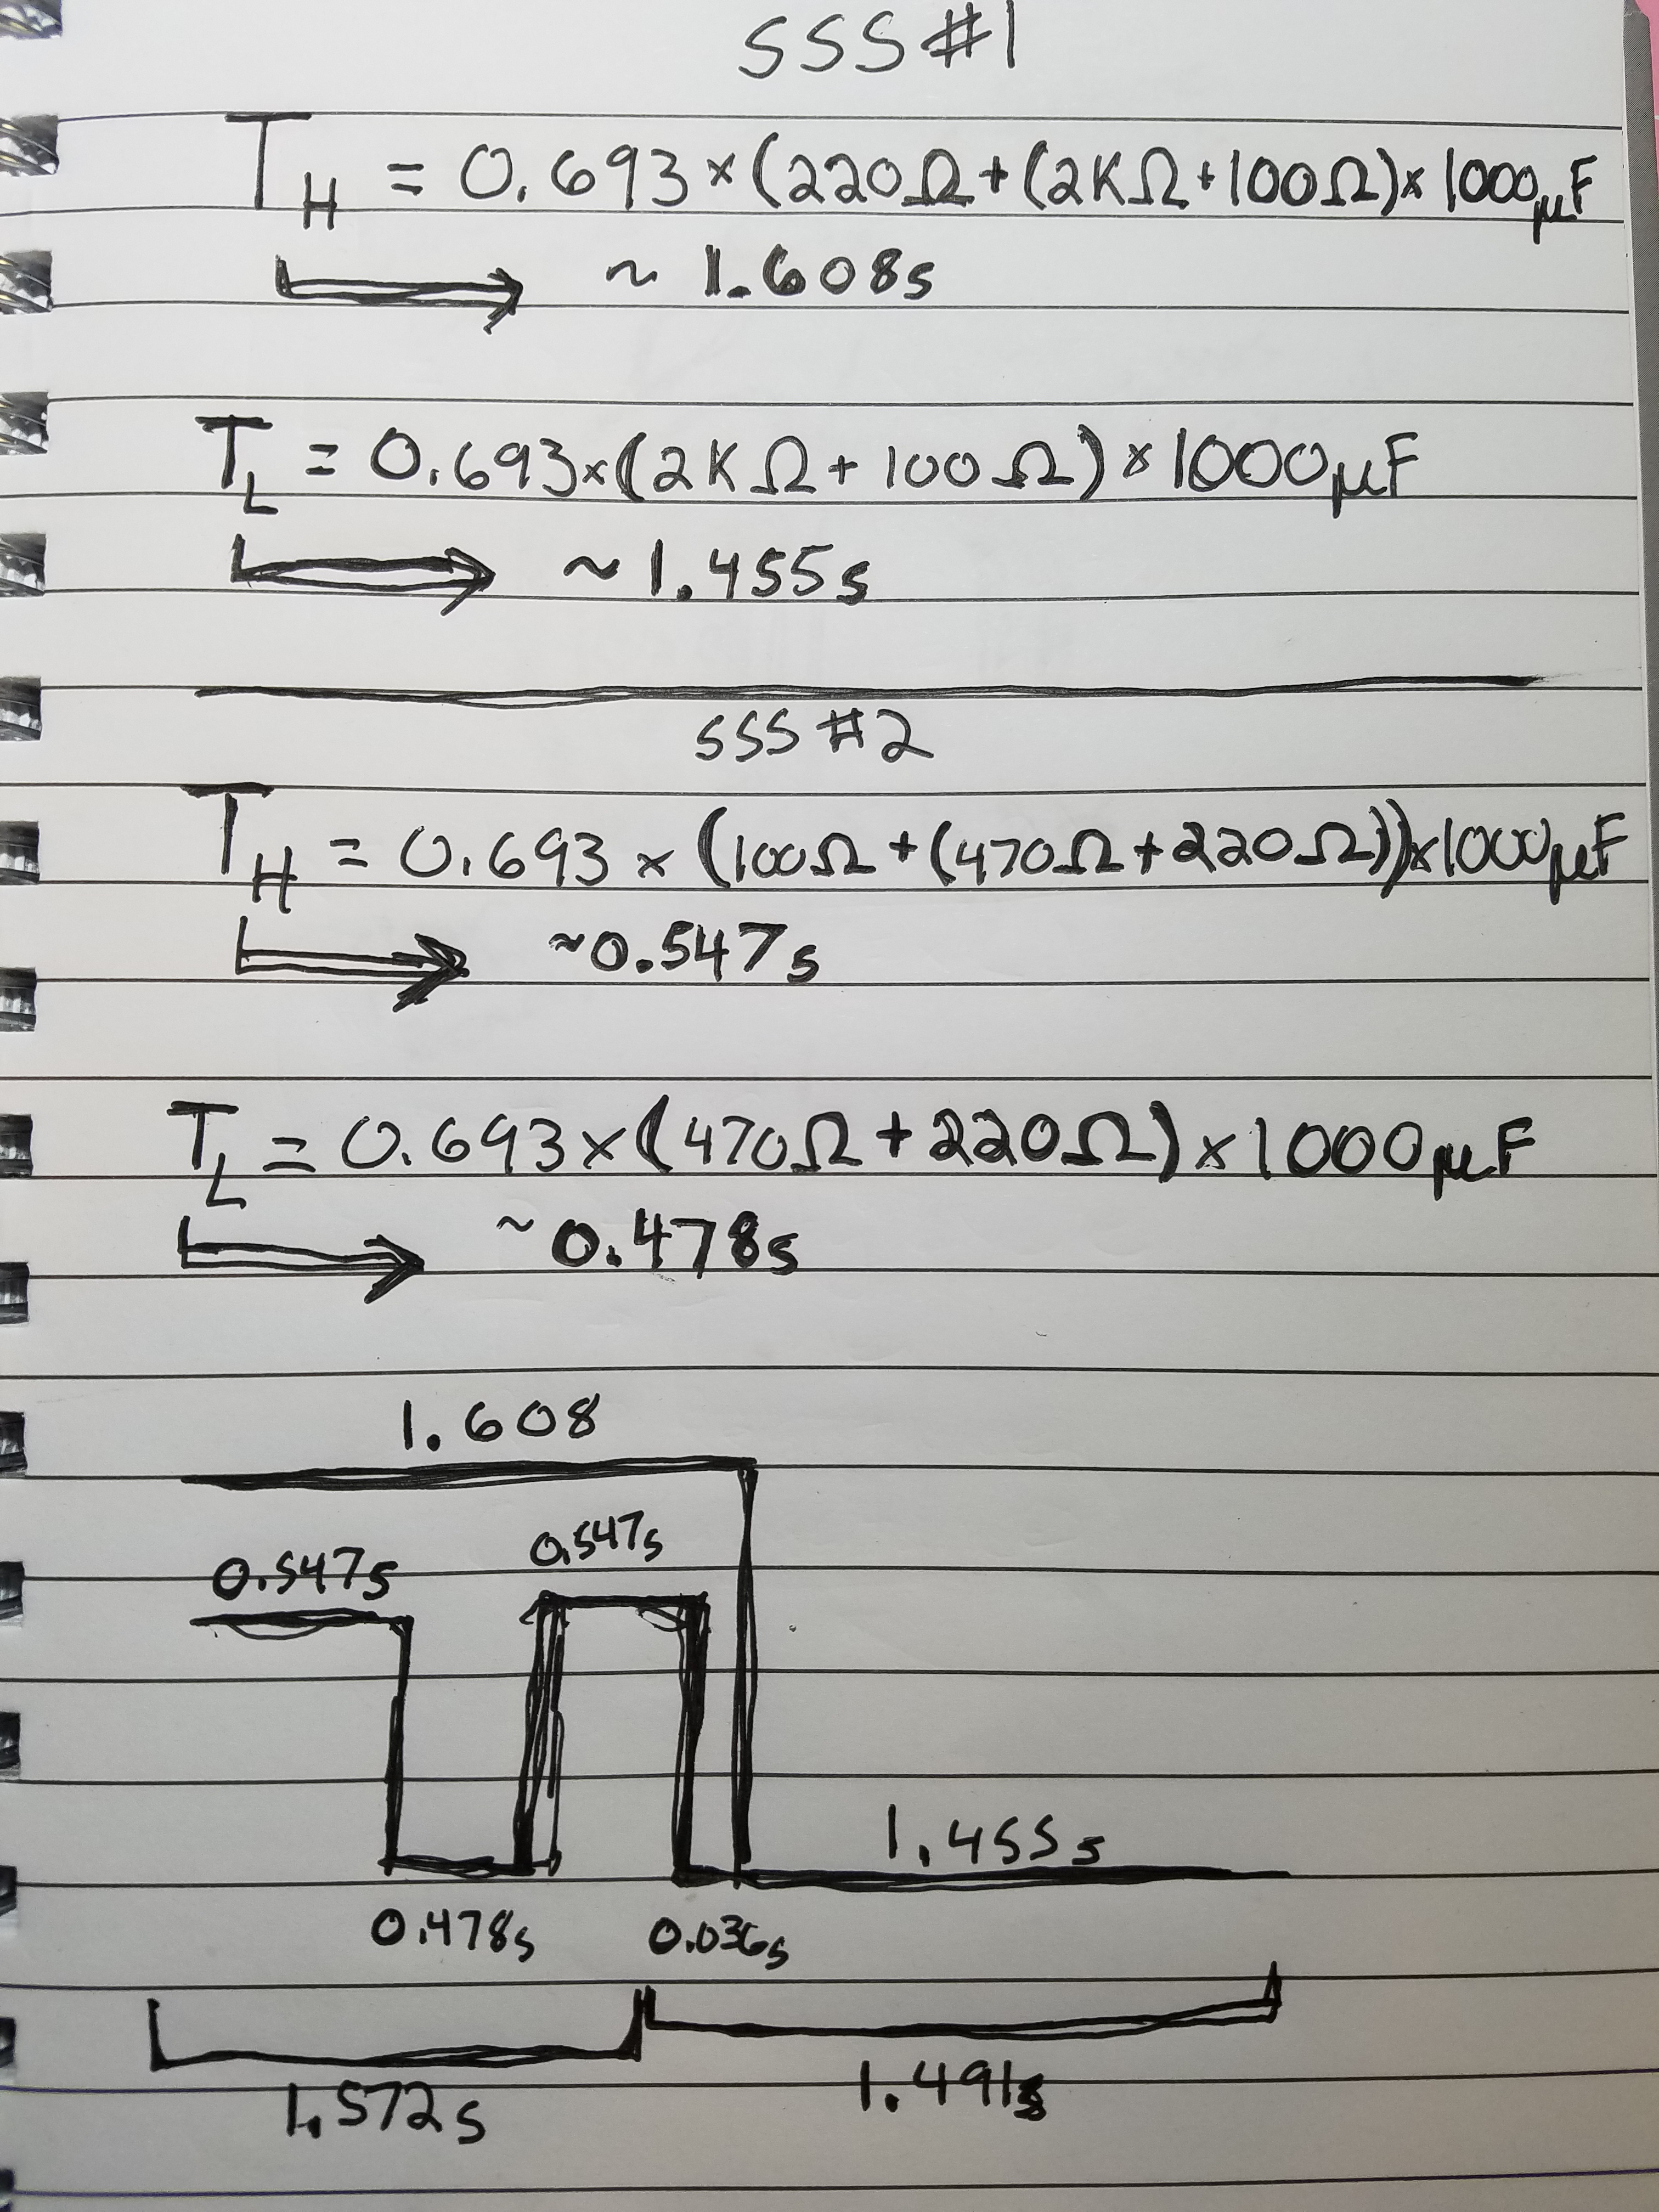 SSS#1
TH = 0.693×(220Ω+(2KΩ+100Ω)×1000μF
~ 1.608s
TL = 0.693×(2KΩ+100Ω)×1000μF
~1.455s
SSS #2
TH = 0.693 × (100Ω+(470Ω+220Ω))×1000μF
~0.547s
TL = 0.693×(470Ω+220Ω)×1000μF
~0.478s
1.608
0.547s 0.547s
1.455s
0.478s 0.036s
1.572s 1.491s